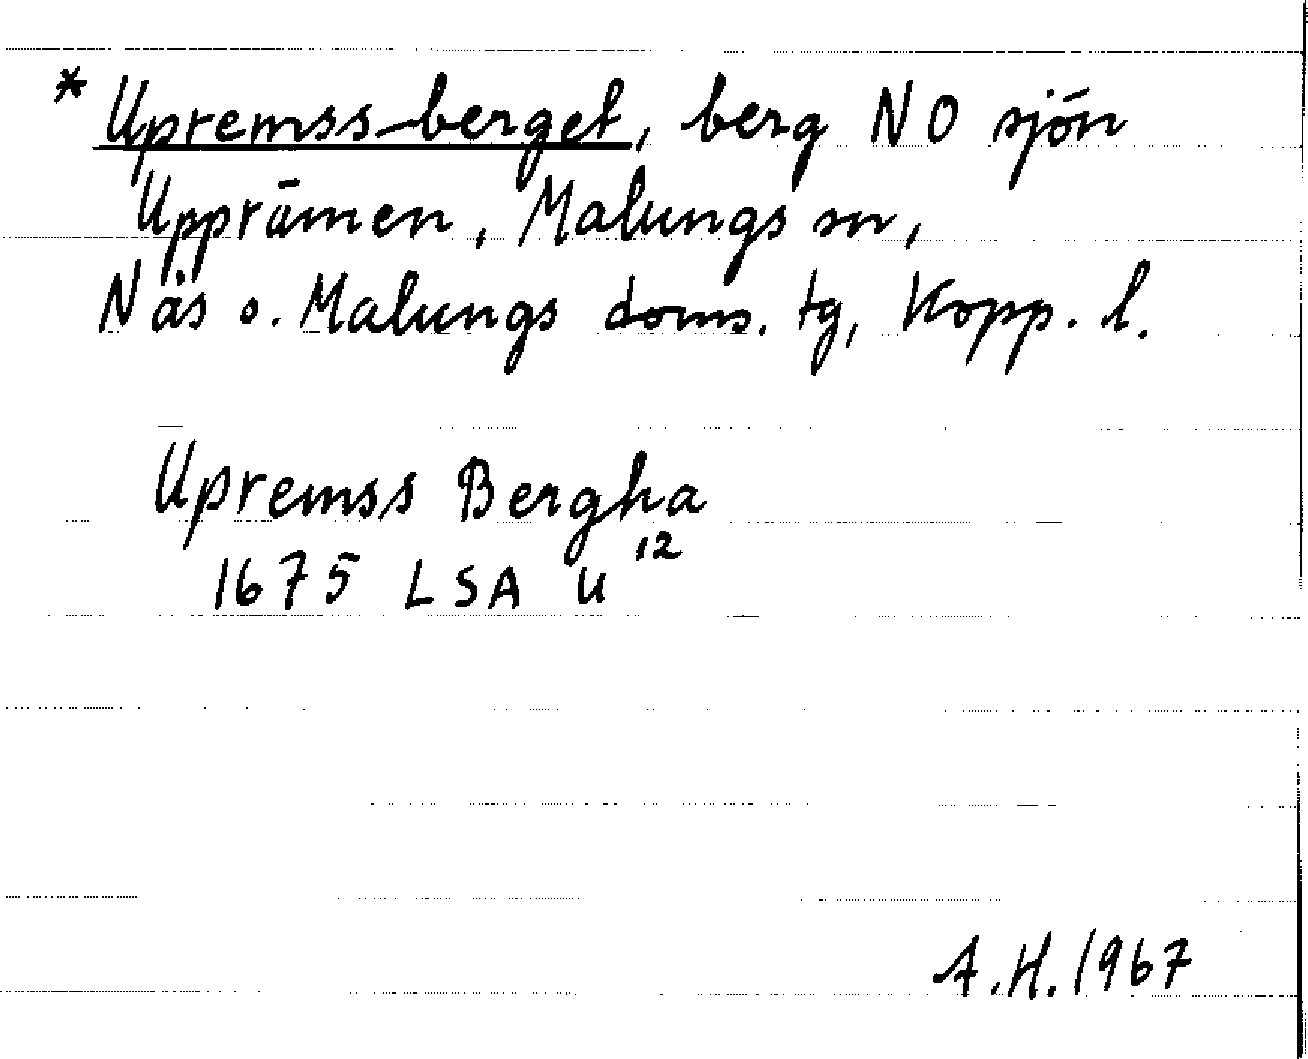 * Upremss-berget, berg NO sjön
Upprämen, Malungs sn,
Näs o. Malungs doms. tg, Kopp. l.
Upremss Bergha
1675 LSA U 12
A.H. 1967